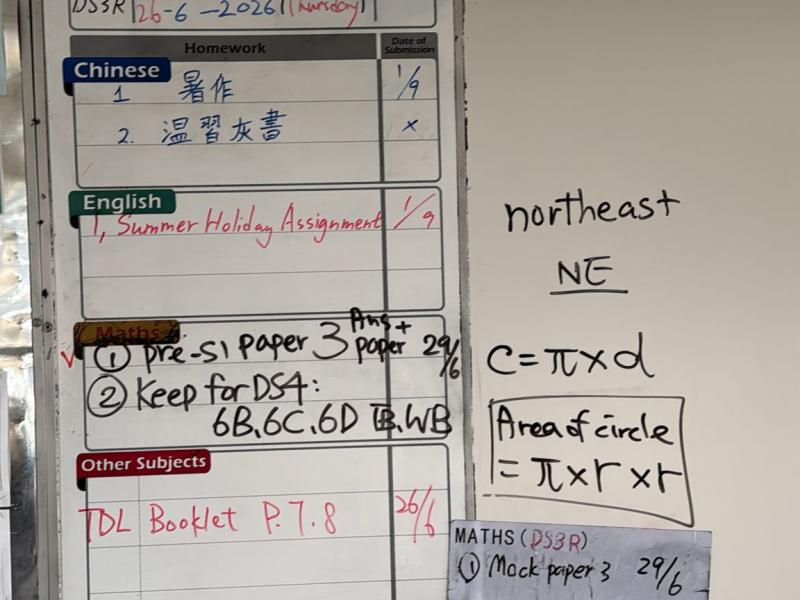 DS3R 26-6-2026 (Thursday)
Homework Date of Submission
Chinese
1 暑作 1/9
2. 温習灰書 x
English
1, Summer Holiday Assignment 1/9
Maths
① pre-S1 paper 3 Ans + paper 29/6
② Keep for DS4:
6B.6C.6D TB.WB
Other Subjects
TDL Booklet P.7.8 26/6
northeast
NE
C=π×d
Area of circle
=π×r×r
MATHS (DS3R)
① Mock paper 3 29/6